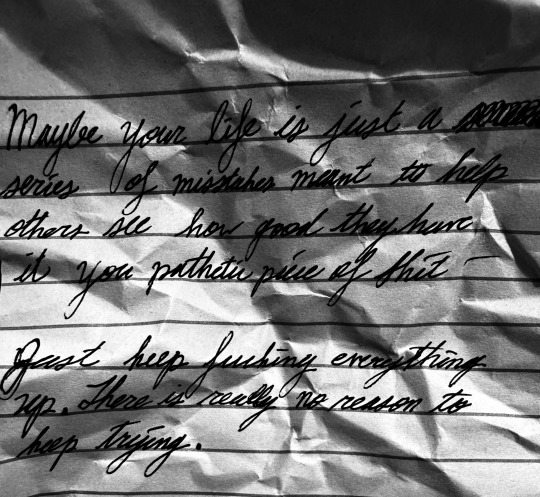 Maybe your life is just a
series of misstakes meant to help
others see how good they have
it you pathetic piece of shit —
Just keep fucking everything
up. There is really no reason to
keep trying.